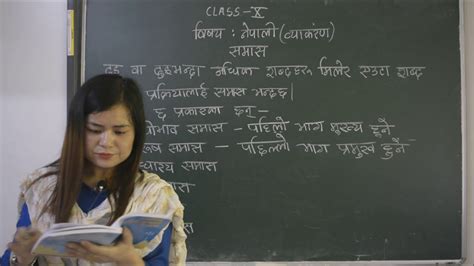 CLASS-X
विषय : नेपाली (व्याकरण)
समास
दुई वा दुईभन्दा बधिक शब्दहरू मिलेर एउटा शब्द
प्रक्रियालाई समास भन्दछ|
६ प्रकारका हुन् -
भाव समास - पहिलो भाग मुख्य हुने
समास - पहिल्लो भाग प्रमुख हुने
समास